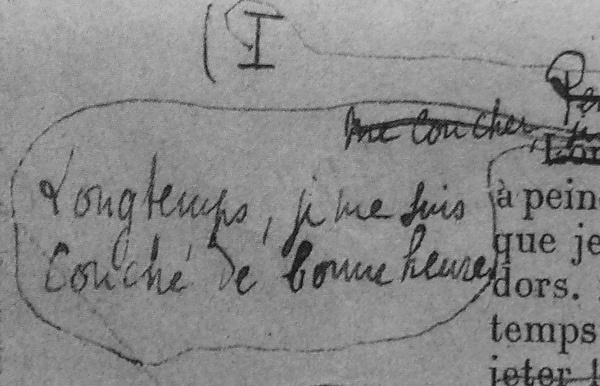 (I
me coucher
Longtemps, je me suis
Couché de bonne heure
à pein
que je
dors.
temps
jeter l